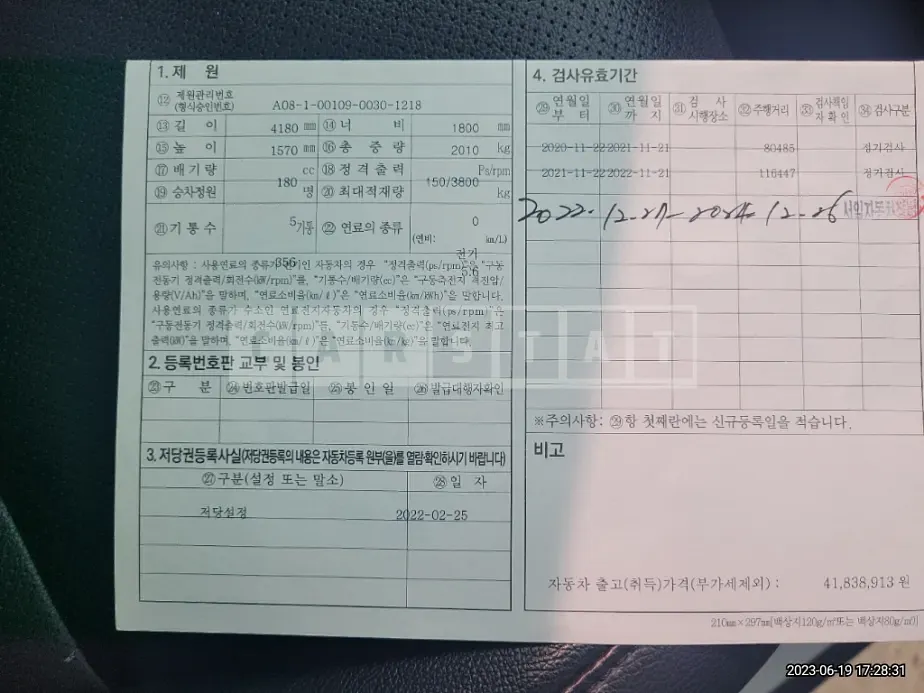 1. 제 원
⑫ 제원관리번호
(형식승인번호) A08-1-00109-0030-1218
⑬ 길 이 4180 ㎜ ⑭ 너 비 1800 ㎜
⑮ 높 이 1570 ㎜ ⑯ 총 중 량 2010 kg
⑰ 배 기 량 cc ⑱ 정 격 출 력 Ps/rpm
180 150/3800
⑲ 승차정원 명 ⑳ 최대적재량 kg
5
㉑ 기 통 수 기통 ㉒ 연료의 종류 0
(연비: ㎞/L)
전기
356 5.6
유의사항 : 사용연료의 종류가 전기인 자동차의 경우 "정격출력(ps/rpm)"은 "구동
전동기 정격출력/회전수(kW/rpm)"를, "기통수/배기량(cc)"은 "구동축전지 정격전압/
용량(V/Ah)"을 말하며, "연료소비율(㎞/ℓ)"은 "연료소비율(㎞/kWh)"을 말합니다.
사용연료의 종류가 수소인 연료전지자동차의 경우 "정격출력(ps/rpm)"은
"구동전동기 정격출력/회전수(kW/rpm)"를, "기통수/배기량(cc)"은 "연료전지 최고
출력(kW)"을 말하며, "연료소비율(㎞/ℓ)"은 "연료소비율(㎞/kg)"을 말합니다.
CARSTAT
2. 등록번호판 교부 및 봉인
㉓ 구 분 ㉔ 번호판발급일 ㉕ 봉 인 일 ㉖ 발급대행자확인
3. 저당권등록사실(저당권등록의 내용은 자동차등록 원부(을)를 열람·확인하시기 바랍니다)
㉗ 구분(설정 또는 말소) ㉘ 일 자
저당설정 2022-02-25
4. 검사유효기간
㉙ 연월일 ㉚ 연월일 ㉛ 검 사 ㉜ 주행거리 ㉝ 검사책임 ㉞ 검사구분
부 터 까 지 시행장소 자확인
2020-11-22 2021-11-21 80485 정기검사
2021-11-22 2022-11-21 116447 정기검사
2022. 12-27 - 2024-12-26
※주의사항: ㉙항 첫째란에는 신규등록일을 적습니다.
비고
자동차 출고(취득)가격(부가세제외) : 41,838,913 원
210㎜×297㎜[백상지120g/㎡또는 백상지80g/㎡]
2023-06-19 17:28:31